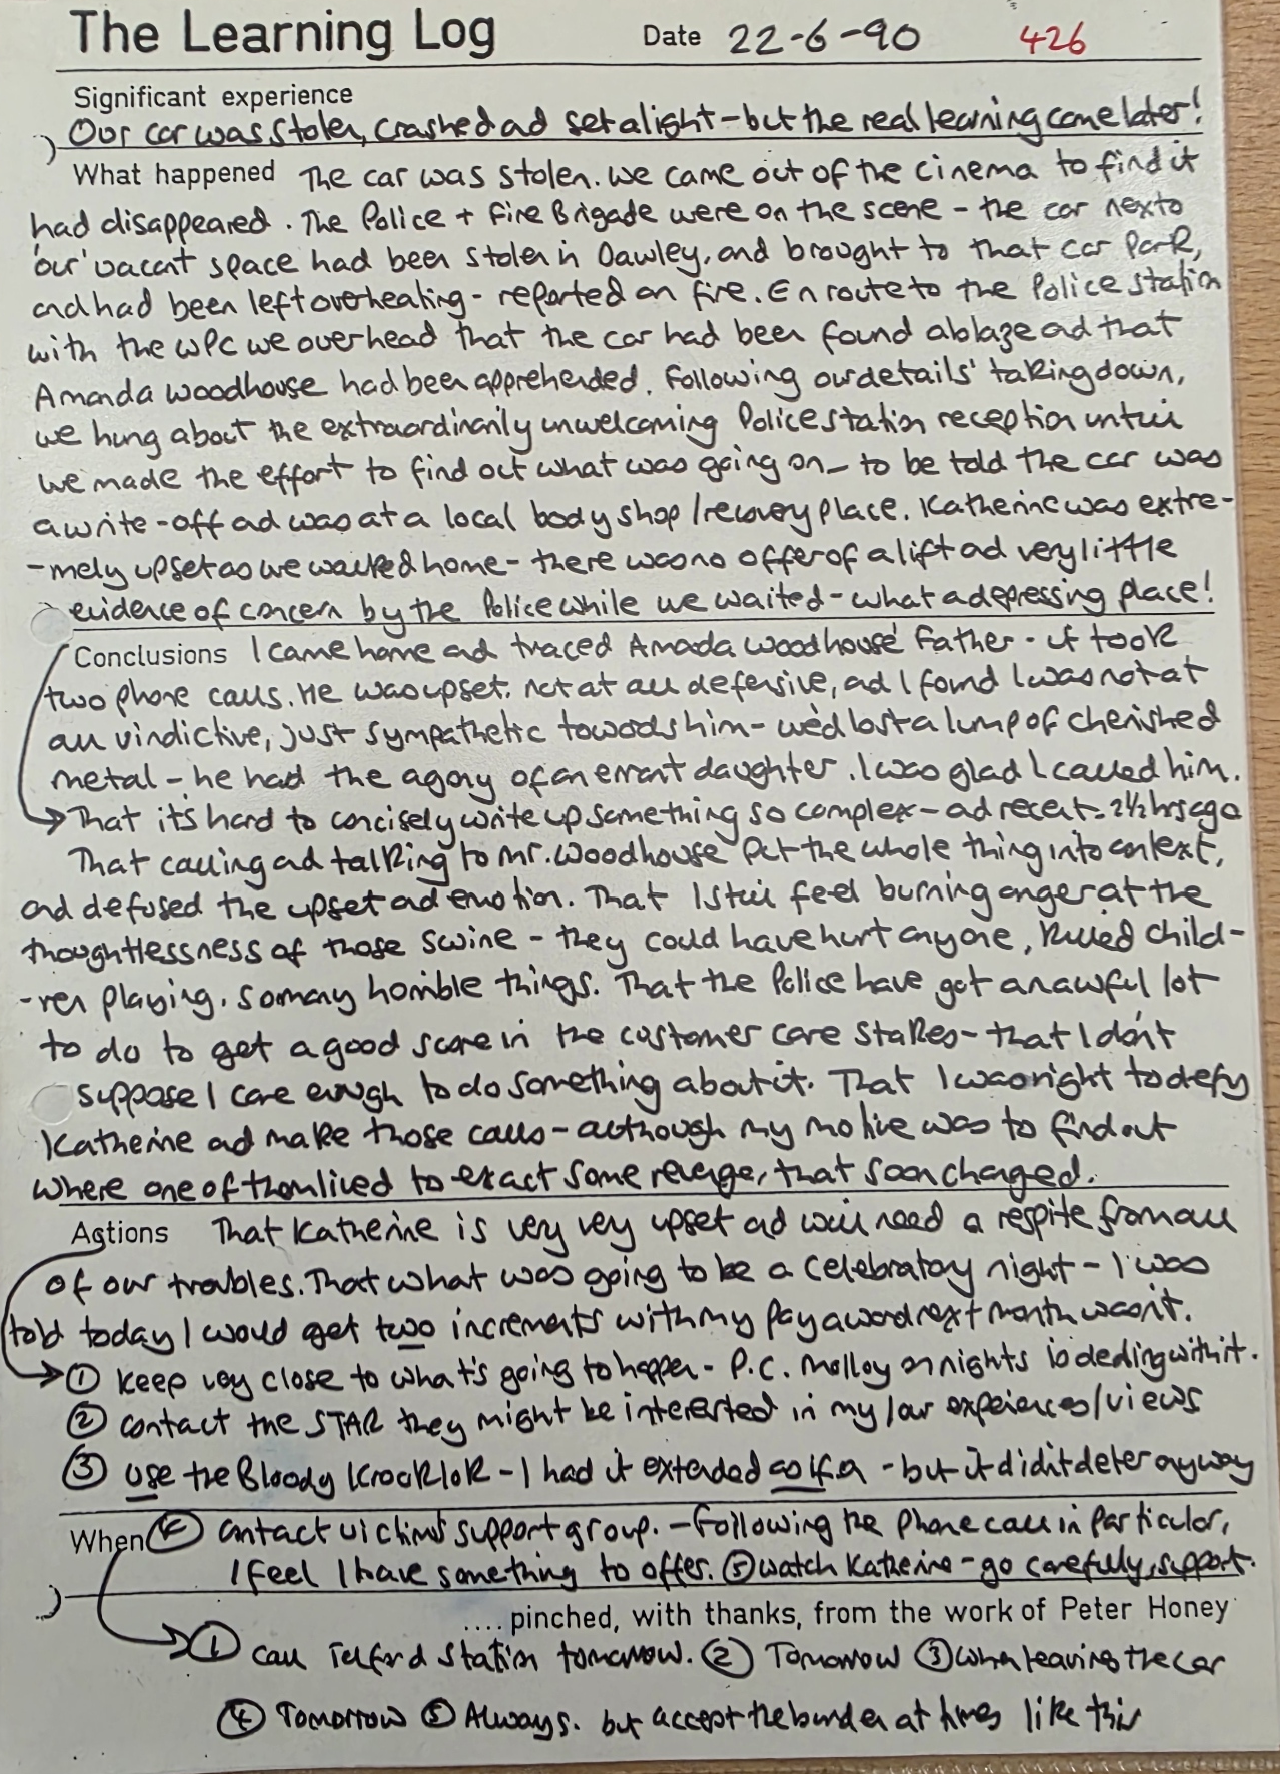 The Learning Log Date 22-6-90 426
Significant experience
Our car was stolen, crashed ad set alight - but the real learning came later!
What happened The car was stolen. We came out of the cinema to find it
had disappeared. The Police + Fire Brigade were on the scene - the car nexto
'our' vacant space had been stolen in Dawley, and brought to that car park,
and had been left overheating - reported on fire. En route to the Police station
with the WPC we overhead that the car had been found ablaze ad that
Amanda Woodhouse had been apprehended. Following our details' taking down,
we hung about the extraordinarily unwelcoming Police station reception until
we made the effort to find out what was going on - to be told the car was
a write-off ad was at a local body shop/recovery place. Katherine was extre-
-mely upset as we walked home - there was no offer of a lift ad very little
evidence of concern by the Police while we waited - what a depressing place!
Conclusions I came home and traced Amada Woodhouse' Father - it took
two phone calls. He was upset, not at all defensive, ad I found I was not at
all vindictive, just sympathetic towards him - we'd lost a lump of cherished
metal - he had the agony of an errant daughter. I was glad I called him.
That it's hard to concisely write up something so complex - ad recent - 2½ hrs ago
That calling ad talking to Mr. Woodhouse put the whole thing into context,
ad defused the upset ad emotion. That I still feel burning anger at the
thoughtlessness of those swine - they could have hurt anyone, killed child-
-ren playing, so many horrible things. That the Police have got an awful lot
to do to get a good score in the customer care stakes - that I don't
suppose I care enough to do something about it. That I was right to defy
Katherine ad make those calls - although my motive was to find out
where one of them lived to exact some revenge, that soon changed.
Actions That Katherine is very very upset ad will need a respite from all
of our troubles. That what was going to be a celebratory night - I was
told today I would get two increments with my pay award next month wasn't.
① Keep very close to what's going to happen - P.C. Molloy on nights is dealing with it.
② Contact the STAR they might be interested in my/our experiences/views
③ Use the Bloody Krooklok - I had it extended as if on - but it didn't deter anyway
When ④ Contact victims' support group. - Following the phone call in particular,
I feel I have something to offer. ⑤ Watch Katherine - go carefully, support.
.... pinched, with thanks, from the work of Peter Honey
① Call Telford Station tomorrow. ② Tomorrow ③ When leaving the car
④ Tomorrow ⑤ Always. but accept the burden at times like this